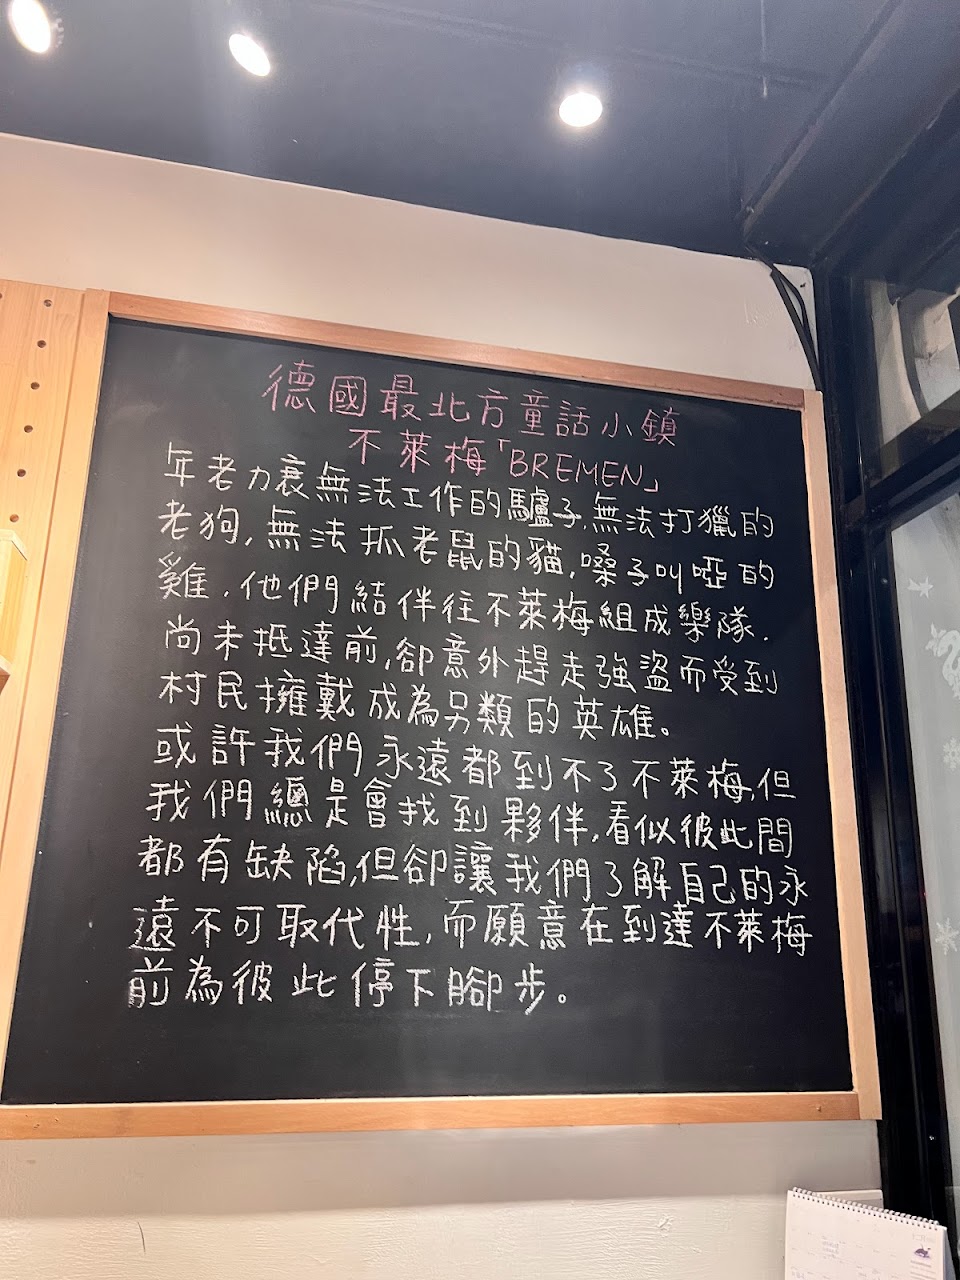 德國最北方童話小鎮
不萊梅「BREMEN」
年老力衰無法工作的驢子,無法打獵的
老狗,無法抓老鼠的貓,嗓子叫啞的
雞,他們結伴往不萊梅組成樂隊,
尚未抵達前,卻意外趕走強盜而受到
村民擁戴成為另類的英雄。
或許我們永遠都到不了不萊梅,但
我們總是會找到夥伴,看似彼此間
都有缺陷,但卻讓我們了解自己的永
遠不可取代性,而願意在到達不萊梅
前為彼此停下腳步。